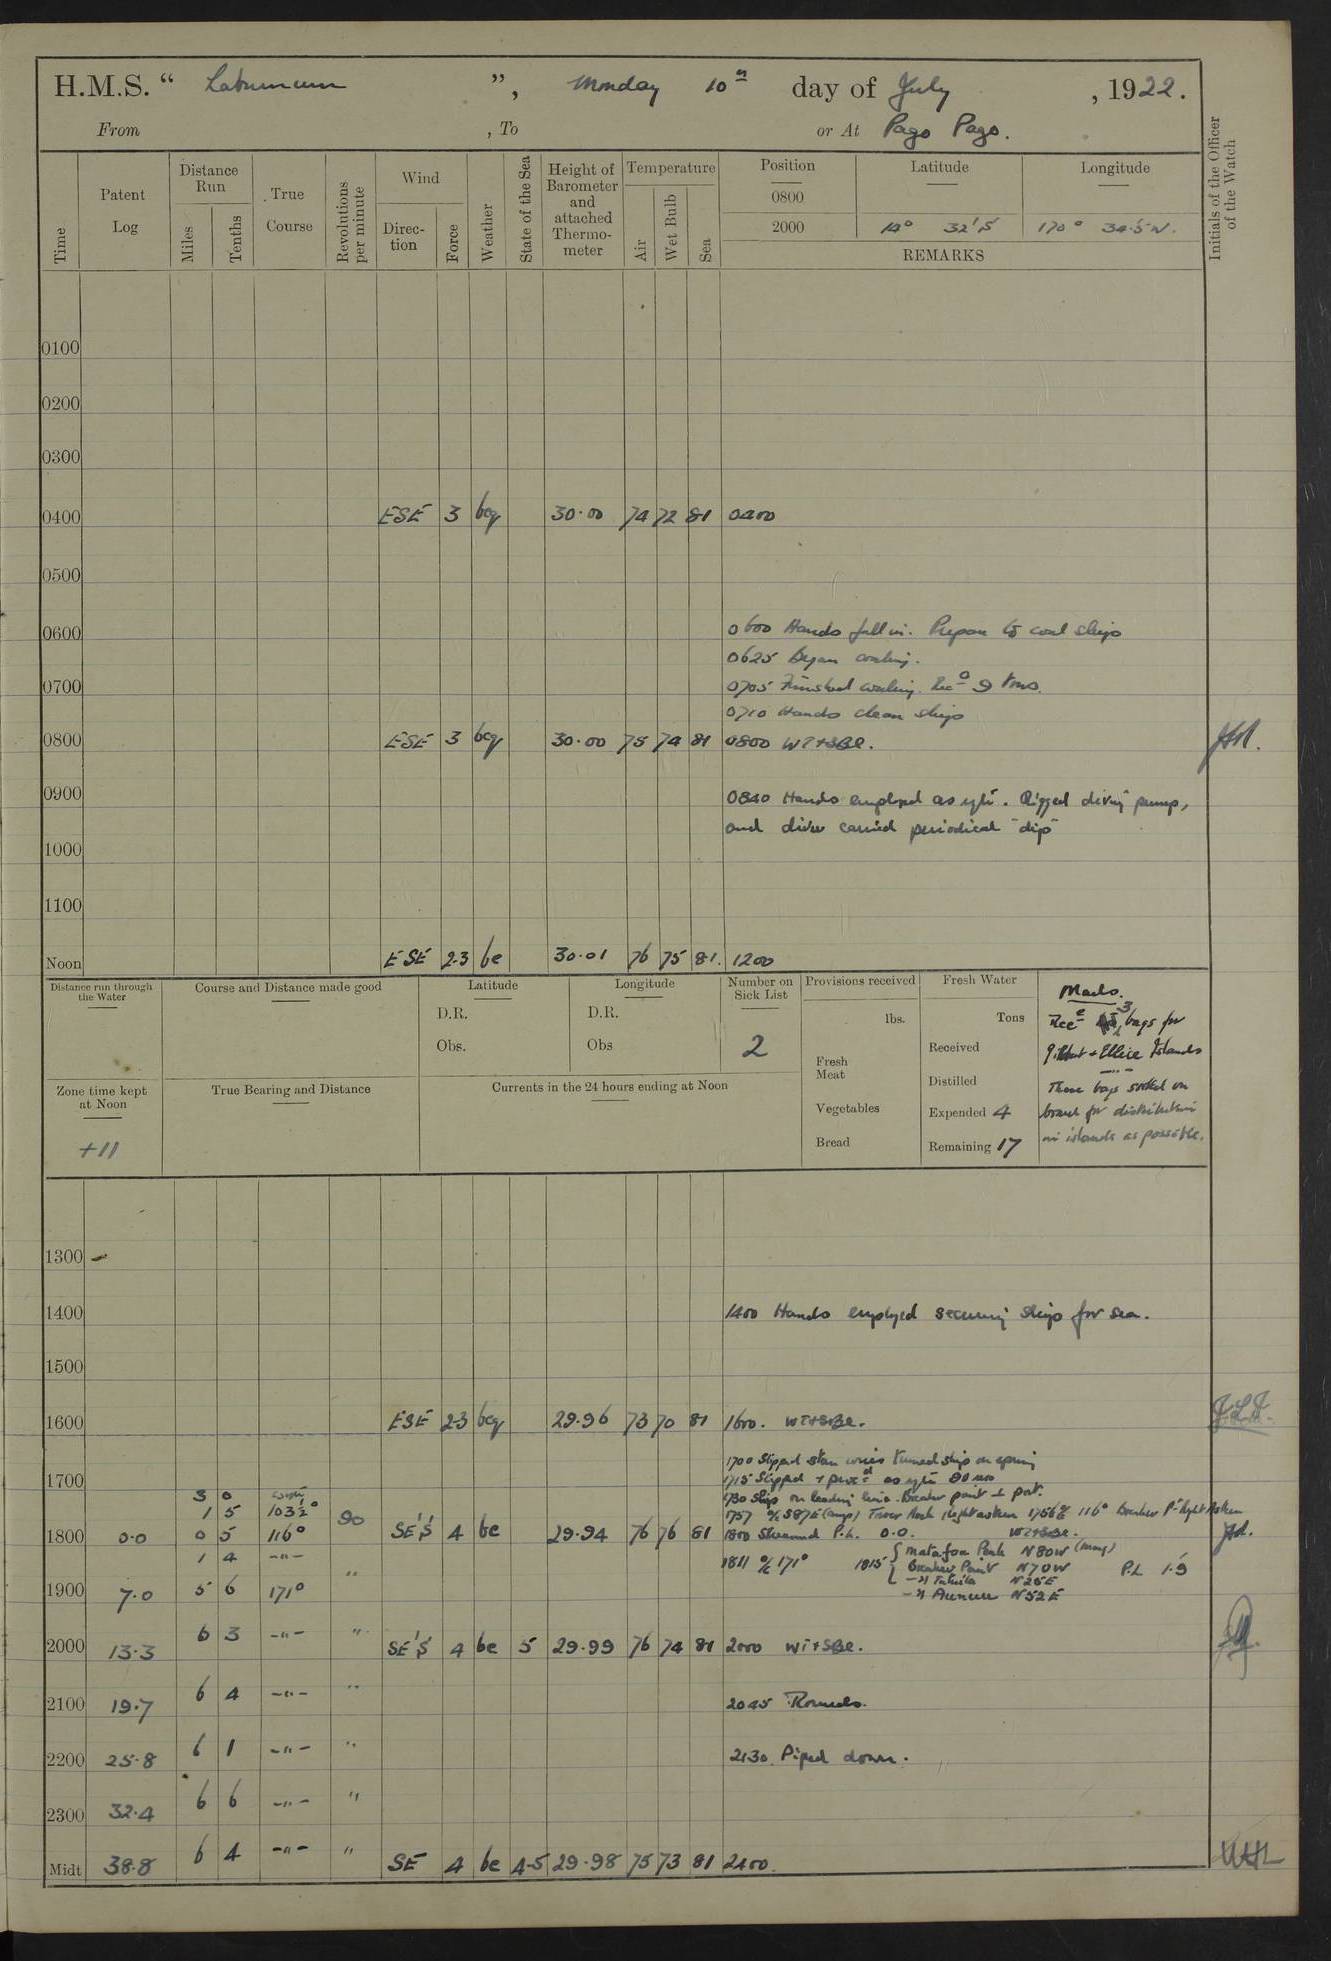 H.M.S. “ Laburnum ”, Monday 10th day of July, 1922.
From , To or At Pago Pago.
Time
Patent Log
Distance Run
Miles
Tenths
True Course
Revolutions per minute
Wind
Direction
Force
Weather
State of the Sea
Height of Barometer and attached Thermometer
Temperature
Air
Wet Bulb
Sea
Position
0800
2000
Latitude
14° 32'S
Longitude
170° 34.5 W.
REMARKS
Initials of the Officer of the Watch
0100
0200
0300
0400 ESE 3 bcq 30.00 74 72 81 0400
0500
0600
0600 Hands fall in. Prepare to coal ship
0625 Began coaling.
0700
0705 Finished coaling. Recd 9 tons.
0710 Hands clean ship
0800 ESE 3 bcq 30.00 75 74 81 0800 WT+SBC.
0900
0840 Hands employed as reqte. Rigged diving pump,
and diver carried periodical "dip"
1000
1100
Noon ESE 2.3 bc 30.01 76 75 81. 1200
Distance run through the Water
Course and Distance made good
Latitude
D.R.
Obs.
Longitude
D.R.
Obs
Number on Sick List
2
Provisions received
lbs.
Fresh Meat
Vegetables
Bread
Fresh Water
Tons
Received
Distilled
Expended 4
Remaining 17
Mails.
Recd 3 bags for
Gilbert + Ellice Islands
These bags sorted on
board for distribution
in islands as possible.
Zone time kept at Noon
+11
True Bearing and Distance
Currents in the 24 hours ending at Noon
1300
1400 1400 Hands employed securing ship for sea.
1500
1600 ESE 2.3 bcq 29.96 73 70 81 1600. WT+SBC.
1700 Slipped stern wires turned ship on spring
1700 1715 Slipped + procd as reqte 80 revs
3 0
1730 Ship on leading line. Breaker point 1 port.
1 5 103½° 90
1800 0.0 0 5 116° SE'S 4 bc 29.94 76 76 81 1800 Streamed P.L. 0.0. WT+SBC.
1 4 -"-
1811 a/c 171° 1815 Matafao Peak N80W (mag)
Breaker Point N70W P.L 1.9
-"- Tutuila N25E
-"- Aunuu N52E
1900 7.0 5 6 171° "
2000 13.3 6 3 -"- " SE'S 4 bc 5 29.99 76 74 81 2000 WT+SBC.
2100 19.7 6 4 -"- " 2045 Rounds.
2200 25.8 6 1 -"- " 2130. Piped down.
2300 32.4 6 6 -"- "
Midt 38.8 6 4 -"- " SE 4 bc 4-5 29.98 75 73 81 2400.